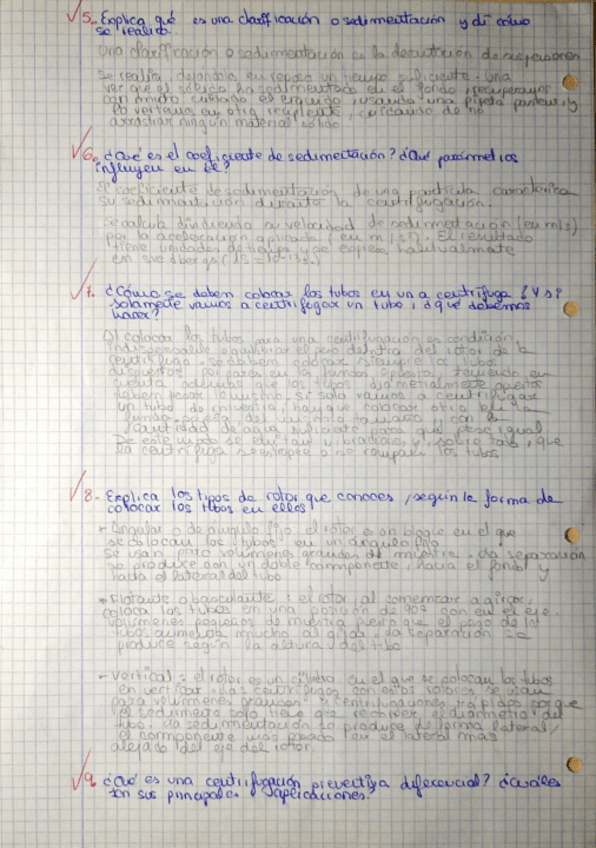 √5. Explica qué es una clarificación o sedimentación y di cómo
se realiza.
Una clarificación o sedimentación es la decantación de
se realiza dejándola en reposo un tiempo suficiente. Una
vez que el sólido ha sedimentado en el fondo, recuperamos
con mucho cuidado el líquido, usando una pipeta pasteur, y
lo vertamos en otro recipiente, cuidando de no
arrastrar ningún material sólido
√6. ¿Qué es el coeficiente de sedimentación? ¿Qué parámetros
influyen en él?
coeficiente de sedimentación de una partícula caracteriza
su sedimentación durante la centrifugación.
Se calcula dividiendo su velocidad de sedimentación (en m/s)
por la aceleración aplicada (en m/s²). El resultado
tiene unidades de tiempo y se expresa habitualmente
en
√7. ¿Cómo se deben colocar los tubos en una centrífuga? ¿Y si
solamente vamos a centrifugar un tubo, ¿qué debemos
hacer?
Al colocar los tubos para una centrifugación es condición
indispensable equilibrar el peso dentro del rotor de la
centrífuga. se deben colocar siempre los tubos
dispuestos por pares en la opuesta, teniendo en
cuenta además que los tubos diametralmente opuestos
deben pesar lo mismo. si solo vamos a centrifugar
un tubo de muestra, hay que colocar otro en la
opuesta, del mismo tamaño y con la
cantidad de agua suficiente para que pese igual
De este modo se evitan vibraciones y, sobre todo, que
la centrífuga se estropee o se rompan los tubos
√8- Explica los tipos de rotor que conoces, según la forma de
colocar los tubos en ellos
- Angular o de ángulo fijo: el rotor es un bloque en el que
se colocan los tubos en un ángulo fijo
se usan para volúmenes grandes de muestra. La separación
se produce con un doble componente, hacia el fondo y
hacia el lateral del tubo
- Flotante o basculante: el rotor, al comenzar a girar,
coloca los tubos en una posición de 90º con en el eje.
volúmenes pequeños de muestra puesto que el peso de los
tubos aumenta mucho al girar. La separación se
produce según la altura del tubo
- Vertical: el rotor es un cilindro en el que se colocan los tubos
en vertical. Las centrífugas con estos rotores se usan
para volúmenes grandes y centrifugaciones rápidas porque
el sedimento solo tiene que recorrer el diámetro del
tubo. La sedimentación se produce de forma lateral,
el componente más pesado en el lateral más
alejado del eje del rotor.
√9. ¿Qué es una centrifugación preventiva diferencial? ¿Cuáles
son sus principales aplicaciones?